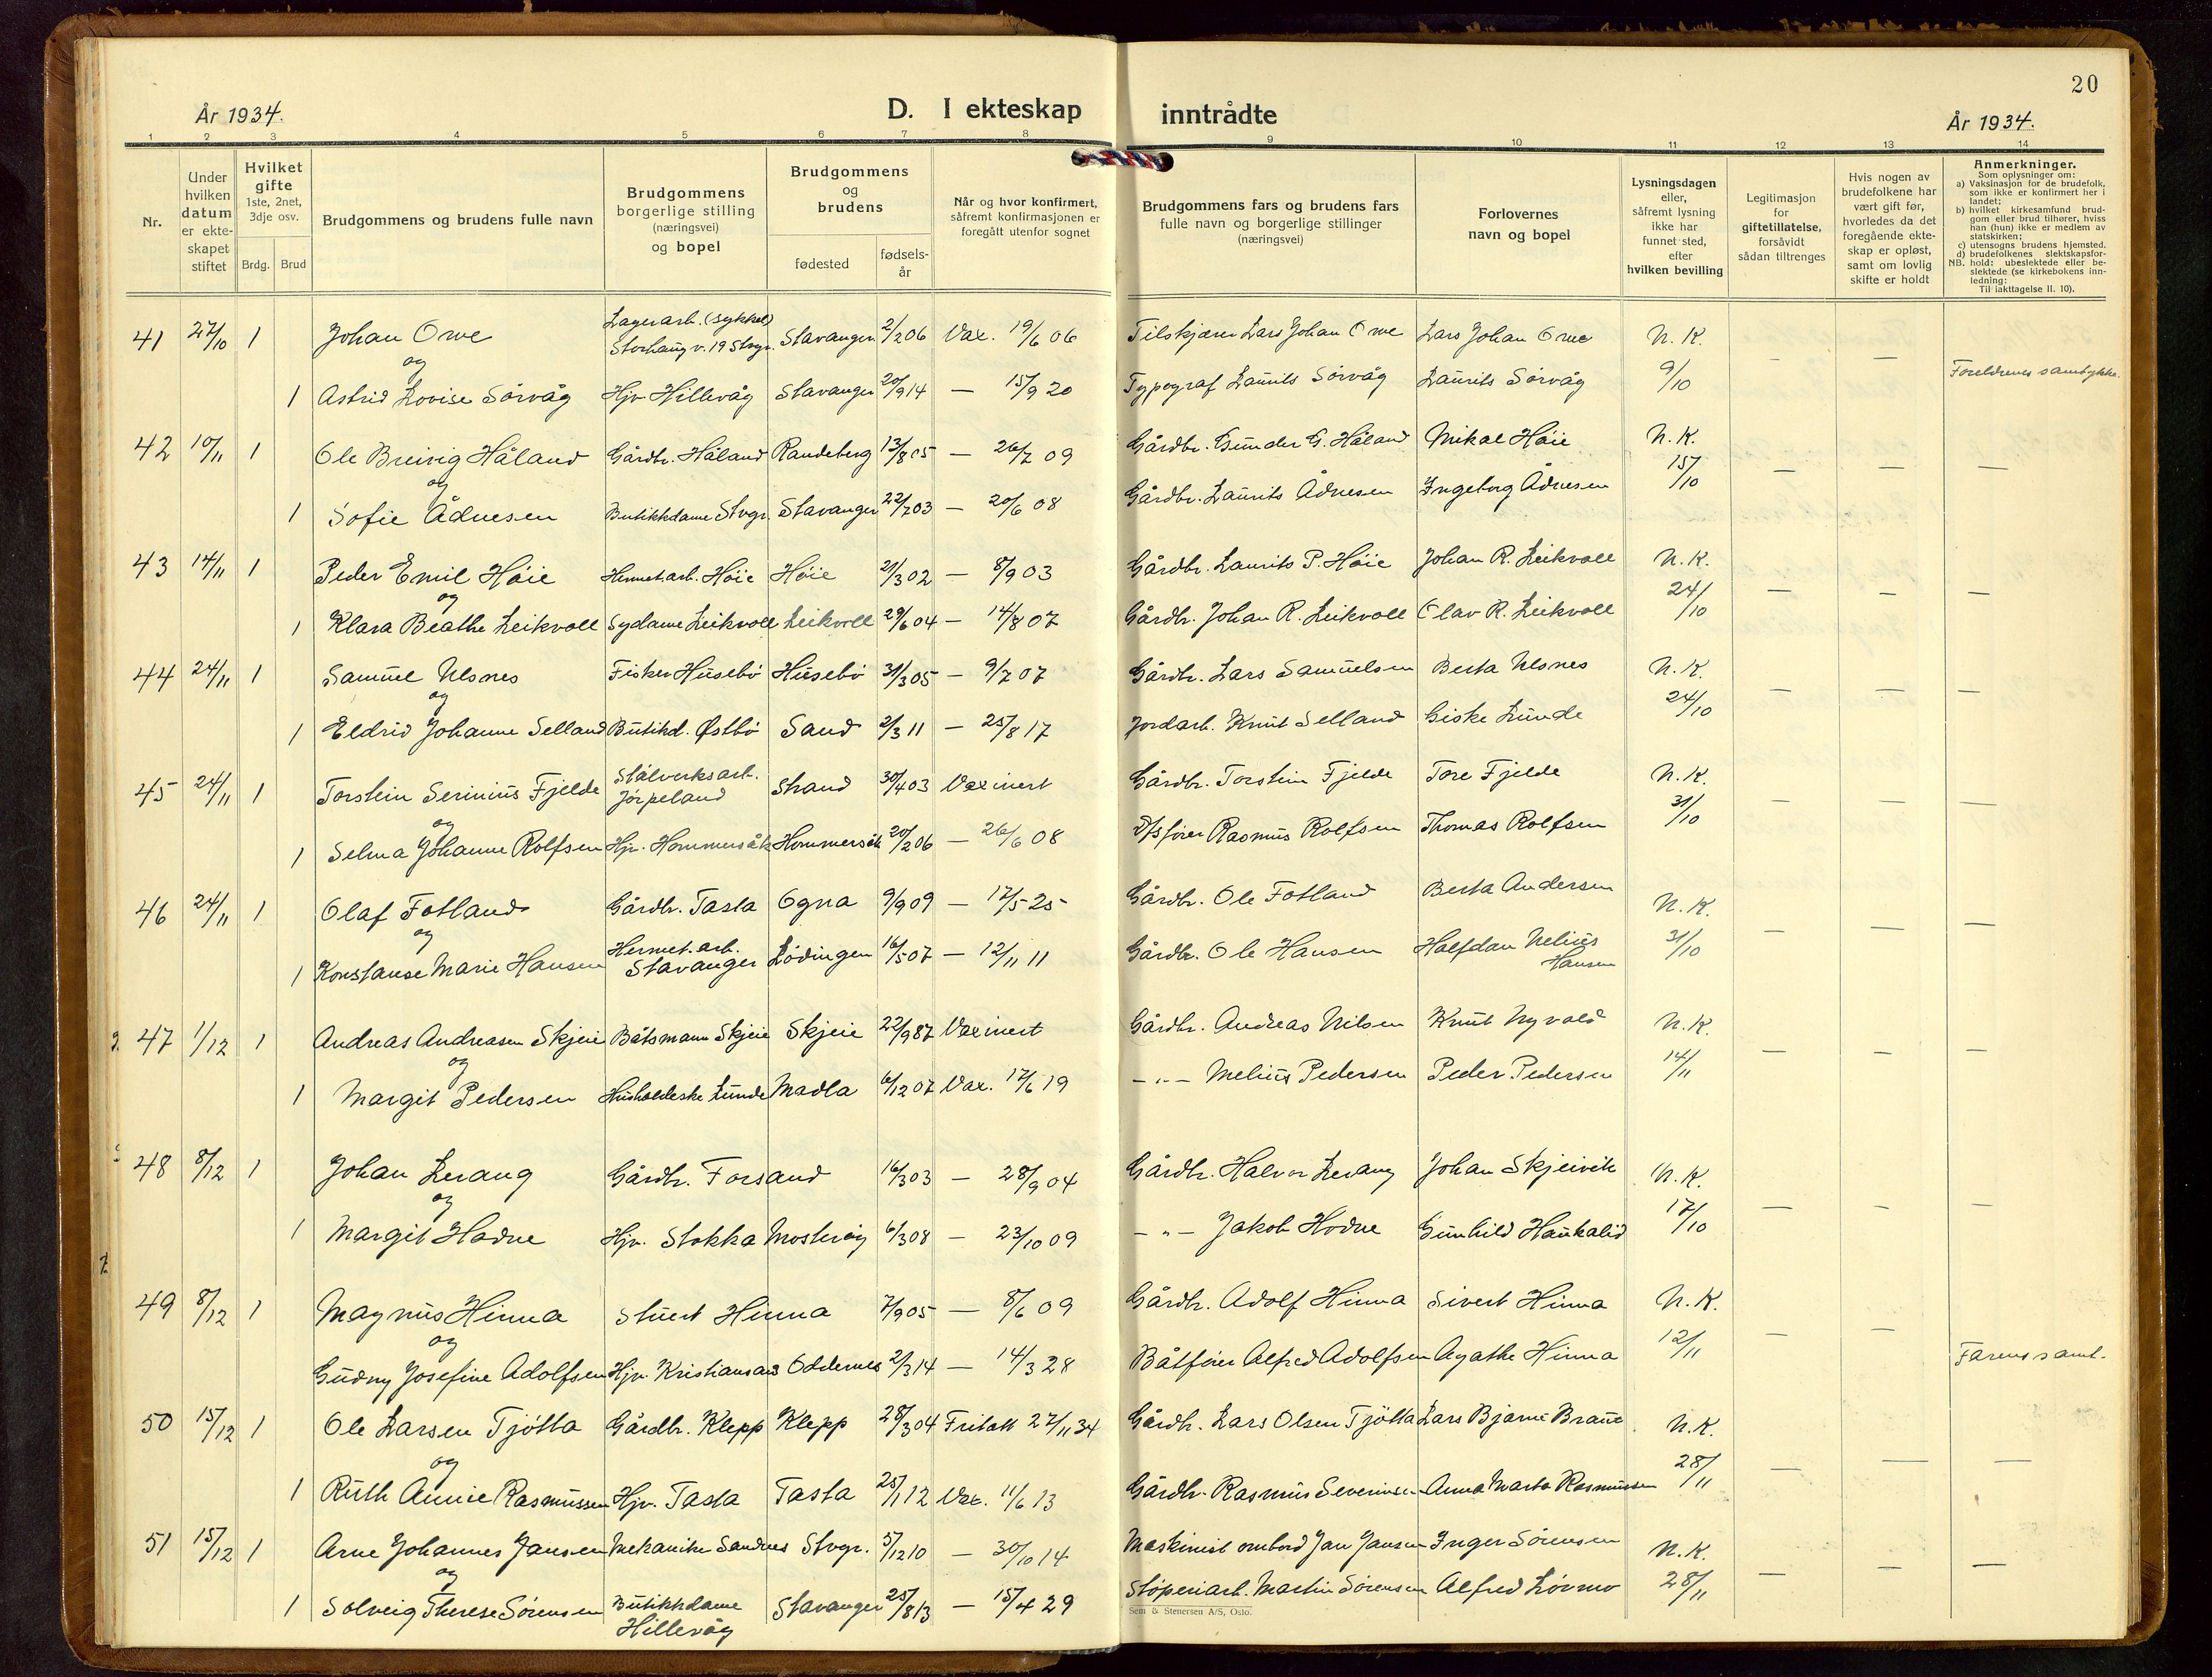 20
År 1934.
D. I ekteskap inntrådte
År 1934.
1 2 3 4 5 6 7 8 9 10 11 12 13 14
Nr.
Under hvilken datum er ekteskapet stiftet
Hvilket gifte 1ste, 2net, 3dje osv.
Brdg. Brud
Brudgommens og brudens fulle navn
Brudgommens borgerlige stilling (næringsvei) og bopel
Brudgommens og brudens
fødested
fødselsår
Når og hvor konfirmert, såfremt konfirmasjonen er foregått utenfor sognet
Brudgommens fars og brudens fars fulle navn og borgerlige stillinger (næringsvei)
Forlovernes navn og bopel
Lysningsdagen eller, såfremt lysning ikke har funnet sted, efter hvilken bevilling
Legitimasjon for giftetillatelse, forsåvidt sådan tiltrenges
Hvis nogen av brudefolkene har vært gift før, hvorledes da det foregående ekteskap er opløst, samt om lovlig skifte er holdt
Anmerkninger.
Som oplysninger om:
a) Vaksinasjon for de brudefolk, som ikke er konfirmert her i landet;
b) hvilket kirkesamfund brudgom eller brud tilhører, hviss han (hun) ikke er medlem av statskirken;
c) utensogns brudens hjemsted.
d) brudefolkenes slektskapsforhold: ubeslektede eller beslektede (se kirkebokens innledning:
NB. Til iakttagelse II. 10).
41 27/10 1 Johan Orre Lagerarb. (sykkel) Storhaug v. 19 Stvgr. Stavanger 2/2 06 Vax. 19/6 06 Lars Johan Orre Lars Johan Orre N.K. — —
og
1 Astrid Lovise Sörvåg Hjv. Hillevåg Stavanger 20/9 14 — 15/9 20 Typograf Laurits Sörvåg Laurits Sörvåg 9/10 Foreldrenes samtykke.
42 10/11 1 Ole Breivig Håland Gårdbr. Håland Randeberg 13/8 05 — 26/7 09 Gårdbr. Gunder G. Håland Mikal Höie N.K. — — —
og
1 Sofie Ådnesen Butikkdame Stvgr. Stavanger 22/7 03 — 20/6 08 Gårdbr. Laurits Ådnesen Ingeborg Ådnesen 15/10
43 14/11 1 Peder Emil Höie Hermetarb. Höie Höie 21/3 02 — 8/9 03 Gårdbr. Laurits P. Höie Johan R. Leikvoll N.K. — — —
og
1 Klara Beathe Leikvoll Sydame Leikvoll Leikvoll 29/6 04 — 14/8 07 Gårdbr. Johan R. Leikvoll Olav R. Leikvoll 24/10
44 24/11 1 Samuel Ulsnes Fisker Husebö Husebö 31/3 05 — 9/7 07 Gårdbr. Lars Samuelsen Berta Ulsnes N.K. — — —
og
1 Eldrid Johanne Selland Butikd. Østbö Sand 2/3 11 — 25/8 17 Jordarb. Knut Selland Giske Lunde 24/10
45 24/11 1 Torstein Serinius Fjelde Stålverksarb. Jörpeland Strand 30/4 03 Vaxinert Gårdbr. Torstein Fjelde Tore Fjelde N.K. — — —
og
1 Selma Johanne Rolfsen Hjv. Hommersåk Hommersåk 20/2 06 — 26/6 08 D/sförer Rasmus Rolfsen Thomas Rolfsen 31/10
46 24/11 1 Olaf Fotland Gårdbr. Tasta Ogna 9/9 09 — 12/5 25 Gårdbr. Ole Fotland Berta Andersen N.K. — — —
og
1 Konstanse Marie Hansen Hermet.arb. Stavanger Lödingen 16/5 07 — 12/11 11 Gårdbr. Ole Hansen Halfdan Nelius Hansen 31/10
47 1/12 1 Andreas Andreasen Skjeie Båtsmann Skjeie Skjeie 22/9 87 Vaxinert Gårdbr. Andreas Nilsen Knut Nyvold N.K. — — —
og
1 Margit Pedersen Husholderske Lunde Madla 6/12 07 Vax. 17/6 19 —"— Melius Pedersen Peder Pedersen 14/11
48 8/12 1 Johan Lerang Gårdbr. Forsand 16/3 03 — 28/9 04 Gårdbr. Halvor Lerang Johan Skjeivik N.K. — — —
og
1 Margit Hodne Hjv. Stokka Mosteröy 6/3 08 — 23/10 09 —"— Jakob Hodne Gunhild Haukalid 17/10
49 8/12 1 Magnus Hinna Stuert Hinna 7/9 05 — 8/6 09 Gårdbr. Adolf Hinna Sivert Hinna N.K. — —
og
Gudny Josefine Adolfsen Hjv. Kristiansand Oddernes 2/3 14 — 14/3 28 Båtförer Alfred Adolfsen Agathe Hinna 12/11 Farens samt.
50 15/12 1 Ole Larsen Tjötta Gårdbr. Klepp Klepp 28/3 04 Fritatt 27/11 34 Gårdbr. Lars Olsen Tjötta Lars Bjarne Braut N.K. — — —
og
1 Ruth Annie Rasmussen Hjv. Tasta Tasta 25/1 12 Vax. 11/6 13 Gårdbr. Rasmus Severinsen Anna Marta Rasmussen 28/11
51 15/12 1 Arne Johannes Jansen Mekaniker Sandnes Stvgr. 5/12 10 — 30/10 14 Maskinist ombord Jan Jansen Inger Sörensen N.K. — — —
og
1 Solveig Therese Sörensen Butikkdame Hillevåg Stavanger 25/8 13 — 15/4 29 Støperiarb. Martin Sörensen Alfred Lövmo 28/11
Sem & Stenersen A/S, Oslo.